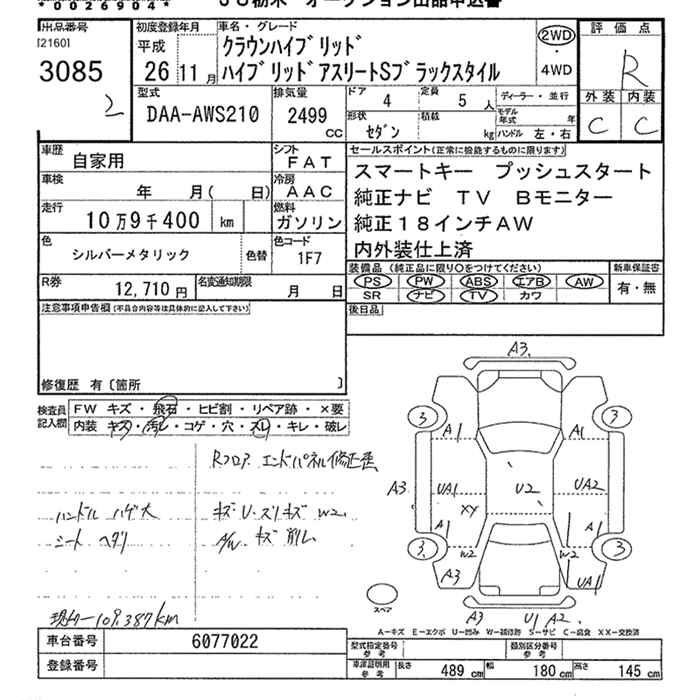 *0020904*
JU栃木 オークション出品申込書
出品番号
[2160]
3085
2
初度登録年月
平成
26 11月
車名・グレード
クラウンハイブリッド
ハイブリッドアスリートSブラックスタイル
2WD
4WD
評価点
R
外装 内装
C C
型式
DAA-AWS210
排気量
2499
CC
ドア 4
定員 5 人
ディーラー・並行
形状 セダン
積載 kg
モデル年式 年
ハンドル 左・右
車歴
自家用
シフト
FAT
車検
年 月( 日)
冷房
AAC
走行
10万9千400 km
燃料
ガソリン
色
シルバーメタリック
色替
色コード
1F7
R券
12,710円
名変通知期限
月 日
セールスポイント(正常に機能するものに限ります)
スマートキー プッシュスタート
純正ナビ TV Bモニター
純正18インチAW
内外装仕上済
装備品 (純正品に限り○をつけてください)
PS PW ABS エアB AW
SR ナビ TV カワ
新車保証書
有・無
注意事項申告欄(不具合内容等は具体的に記入して下さい)
後日品
修復歴 有〔箇所 〕
検査員記入欄
FW キズ・飛石・ヒビ割・リペア跡・×要
内装 キズ・汚レ・コゲ・穴・スレ・キレ・破レ
Rフロア エンドパネル修正歪
ハンドル ハゲ大
シート ヘタリ
キズ・U・スリキズ W2
A/W キズ 削レ
現メー109,387km
A3
3 3
A1 A1
A3 UA1 U2 UA2
XY
A1
3 W2 W2 3
A3 UA1
スペア
A3 U1 A2
A−キズ E−エクボ U−凹み W−補修跡 S−サビ C−腐食 XX−交換済
車台番号 6077022
登録番号
型式指定番号 参考
類別区分番号 参考
車庫証明用 参考
長さ 489 cm 幅 180 cm 高さ 145 cm